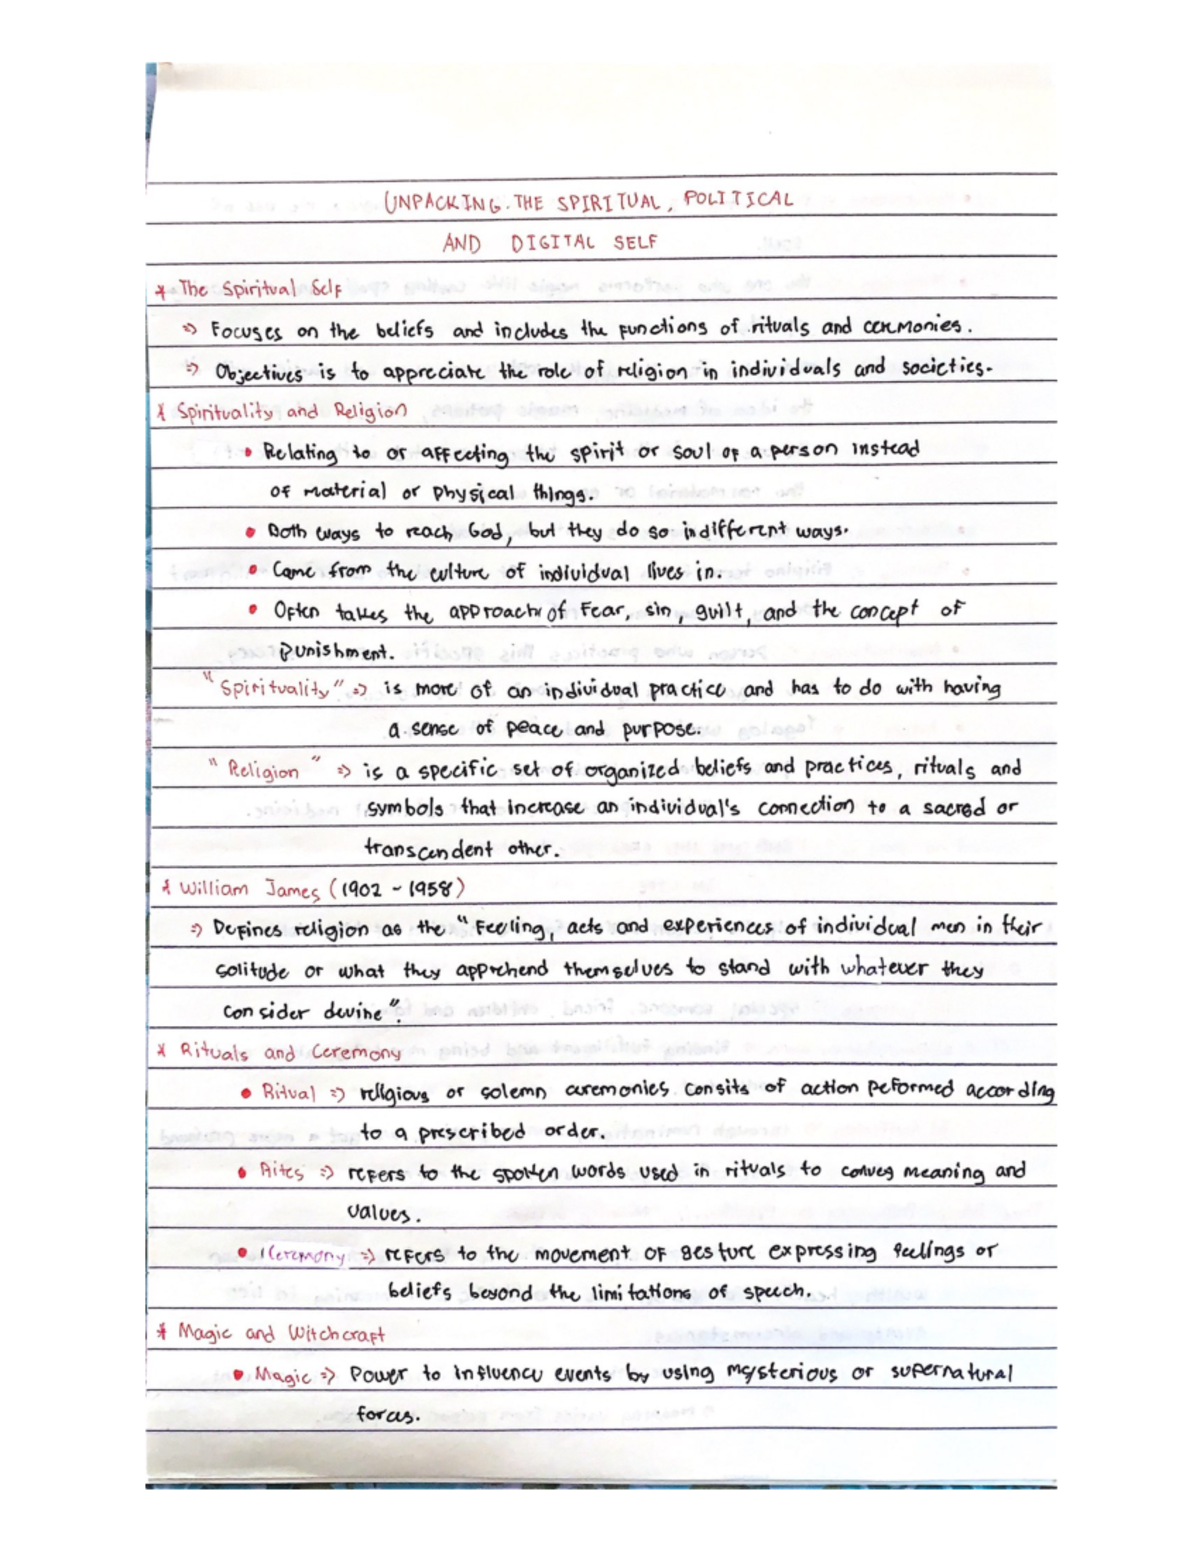 UNPACKING THE SPIRITUAL, POLITICAL
AND DIGITAL SELF
* The Spiritual Self
⇒ Focuses on the beliefs and includes the functions of rituals and ceremonies.
⇒ Objectives is to appreciate the role of religion in individuals and societies.
* Spirituality and Religion
• Relating to or affecting the spirit or soul of a person instead
of material or physical things.
• Both ways to reach God, but they do so in different ways.
• Came from the culture of individual lives in.
• Often takes the approach of fear, sin, guilt, and the concept of
punishment.
"Spirituality" ⇒ is more of an individual practice and has to do with having
a sense of peace and purpose.
"Religion" ⇒ is a specific set of organized beliefs and practices, rituals and
symbols that increase an individual's connection to a sacred or
transcendent other.
* William James (1902 - 1958)
⇒ Defines religion as the "Feeling, acts and experiences of individual men in their
solitude or what they apprehend themselves to stand with whatever they
consider devine".
* Rituals and Ceremony
• Ritual ⇒ religious or solemn ceremonies. Consits of action peformed according
to a prescribed order.
• Rites ⇒ refers to the spoken words used in rituals to convey meaning and
values.
• Ceremony ⇒ refers to the movement of gesture expressing feelings or
beliefs beyond the limitations of speech.
* Magic and Witchcraft
• Magic ⇒ Power to influence events by using mysterious or supernatural
forces.